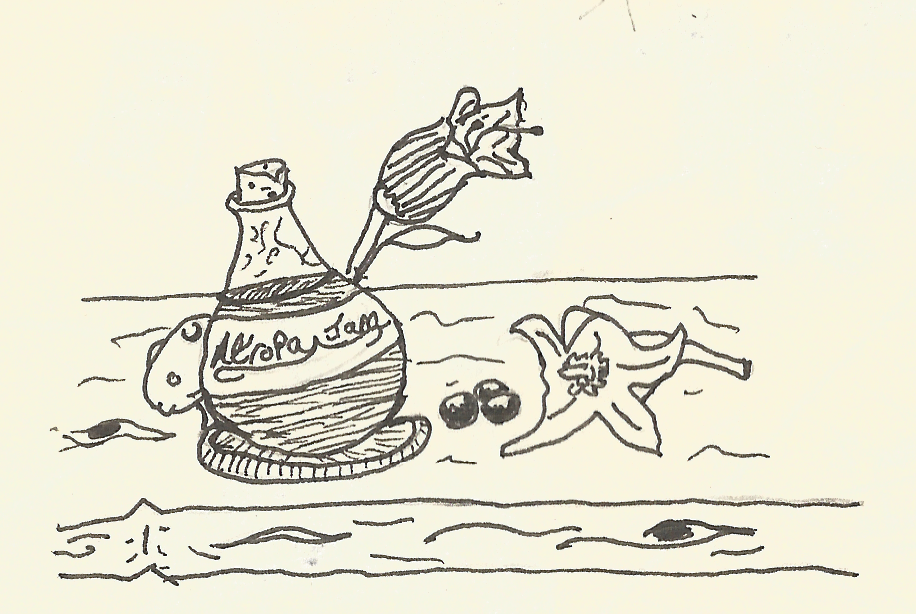 Atropa Jam